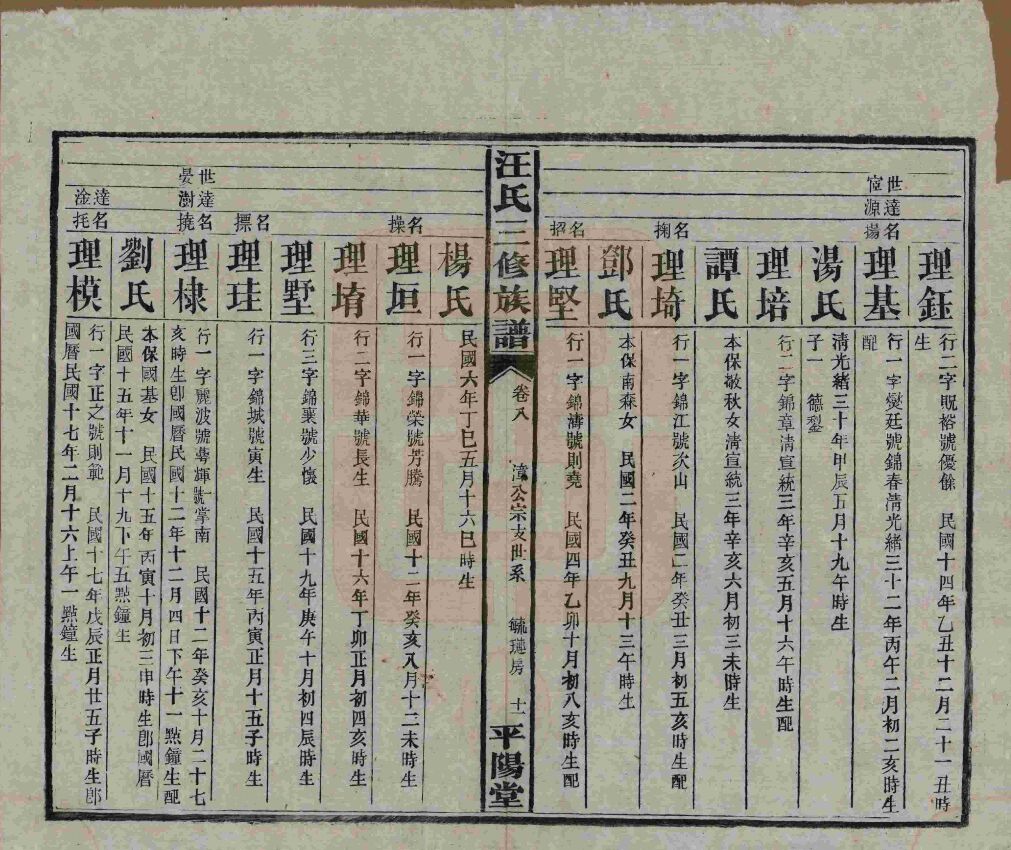 理鈺 行二字旣裕號優餘 民國十四年乙丑十二月二十一丑時
生
世宦
達源
名揚
理基 行一字燮廷號錦春淸光緒三十二年丙午二月初二亥時生
配
湯氏 淸光緒三十年甲辰五月十九午時生
子一 德㓻
理培 行二字錦章淸宣統三年辛亥五月十六午時生配
譚氏 本保敬秋女淸宣統三年辛亥六月初三未時生
名掬
理埼 行一字錦江號次山 民國二年癸丑三月初五亥時生配
鄧氏 本保甫森女 民國二年癸丑九月十三午時生
名招
理堅 行一字錦濤號則堯 民國四年乙卯十月初八亥時生配
汪氏三修族譜
卷八 漳公宗支世系 毓璉房 十一
平陽堂
楊氏 民國六年丁巳五月十六巳時生
名操
理垣 行一字錦榮號芳騰 民國十二年癸亥八月十二未時生
理堉 行二字錦華號長生 民國十六年丁卯正月初四亥時生
理墅 行三字錦襄號少懷 民國十九年庚午十月初四辰時生
名摽
理珪 行一字錦城號寅生 民國十五年丙寅正月十五子時生
世晏
達澍
名撓
理棣 行一字麗波號萼輝號掌南 民國十二年癸亥十月二十七
亥時生卽國曆民國十二年十二月四日下午十一點鐘生配
劉氏 本保國基女 民國十五年丙寅十月初三申時生卽國曆
民國十五年十一月十九下午五點鐘生
達淦
名托
理模 行一字正之號則範 民國十七年戊辰正月廿五子時生卽
國曆民國十七年二月十六上午一點鐘生